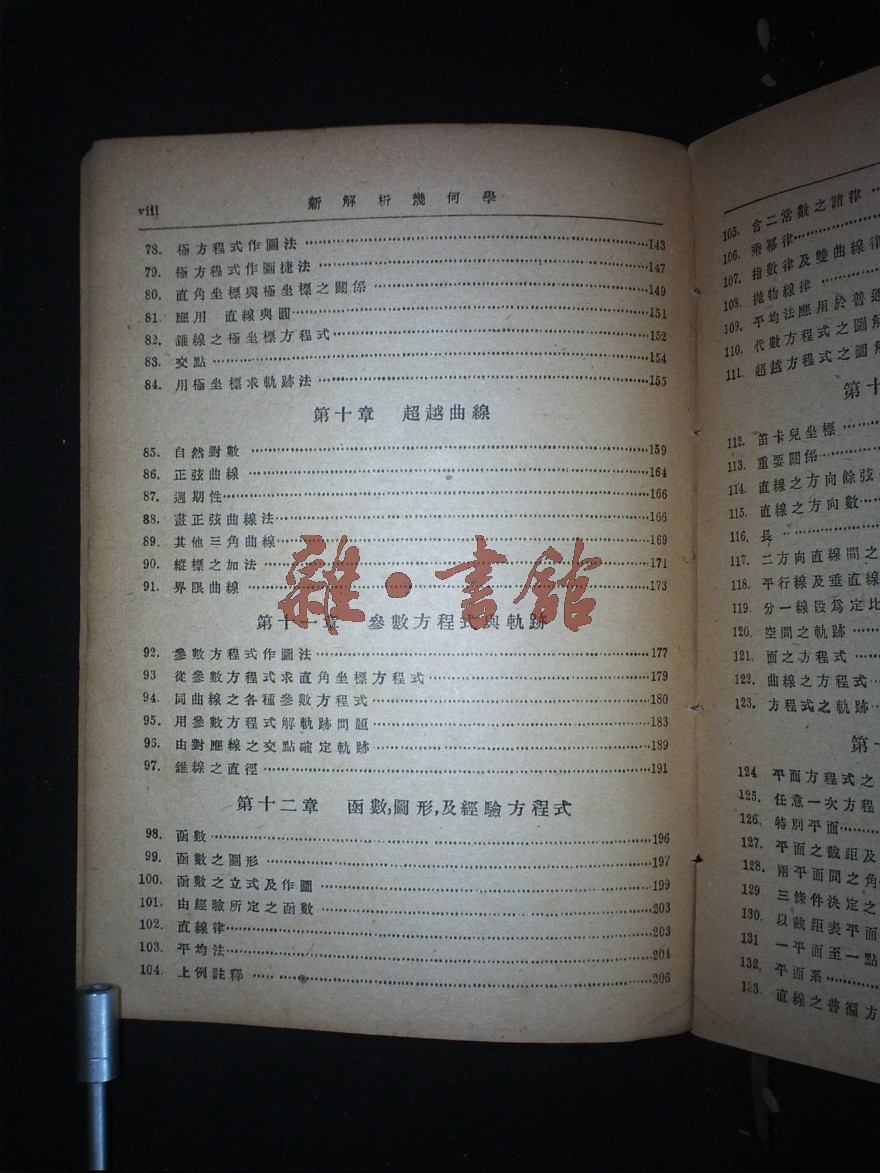 viii 新解析幾何學
78. 極方程式作圖法 143
79. 極方程式作圖捷法 147
80. 直角坐標與極坐標之關係 149
81. 應用 直線與圓 151
82. 錐線之極坐標方程式 152
83. 交點 154
84. 用極坐標求軌跡法 155
第十章 超越曲線
85. 自然對數 159
86. 正弦曲線 164
87. 週期性 166
88. 畫正弦曲線法 166
89. 其他三角曲線 169
90. 縱標之加法 171
91. 界限曲線 173
雜·書館
第十一章 參數方程式與軌跡
92. 參數方程式作圖法 177
93 從參數方程式求直角坐標方程式 179
94. 同曲線之各種參數方程式 180
95. 用參數方程式解軌跡問題 183
96. 由對應線之交點確定軌跡 189
97. 錐線之直徑 191
第十二章 函數,圖形,及經驗方程式
98. 函數 196
99. 函數之圖形 197
100. 函數之立式及作圖 199
101. 由經驗所定之函數 203
102. 直線律 203
103. 平均法 204
104. 上例註釋 206
105. 含二常數之諸律
106. 乘冪律
107. 指數律及雙曲線律
108. 拋物線律
109. 平均法應用於普通
110. 代數方程式之圖解
111. 超越方程式之圖解
第十
112. 笛卡兒坐標
113. 重要關係
114. 直線之方向餘弦
115. 直線之方向數
116. 長
117. 二方向直線間之
118. 平行線及垂直線
119. 分一線段爲定比
120. 空間之軌跡
121. 面之方程式
122. 曲線之方程式
123. 方程式之軌跡
第十
124 平面方程式之
125. 任意一次方程
126. 特別平面
127. 平面之截距及
128. 兩平面間之角
129 三條件決定之
130. 以截距表平面
131 一平面至一點
132. 平面系
133. 直線之普徧方